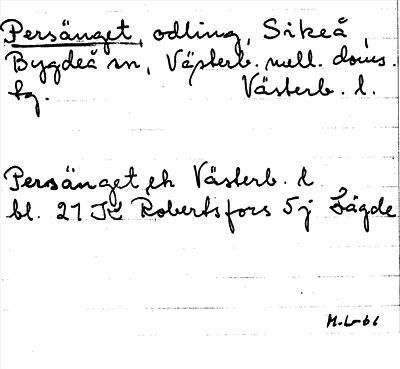 Persänget, odling, Sikeå,
Bygdeå sn, Västerb. mell. doms.
tg. Västerb. l.
Persänget, ek Västerb. l
bl. 21 Robertsfors 5j Lågde
M.L-66